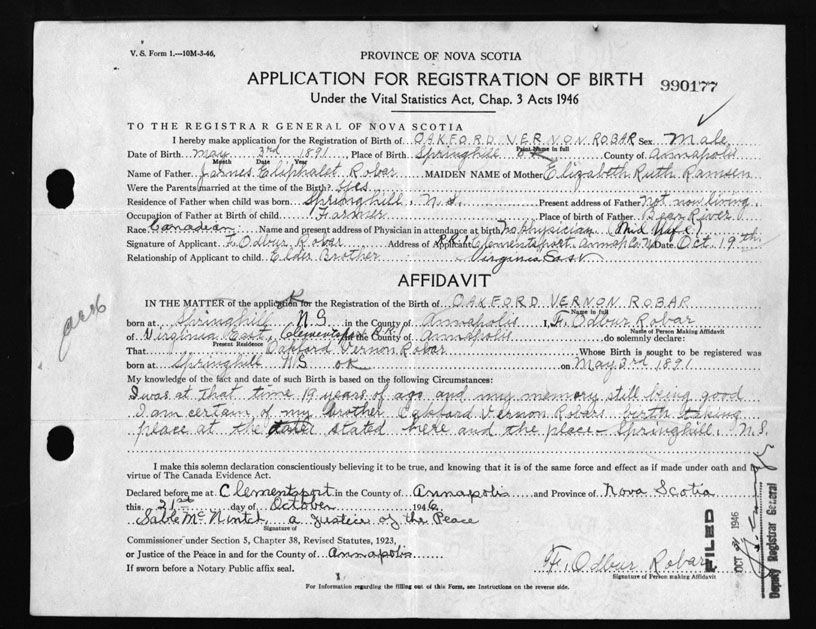 V. S. Form 1.—10M-3-46.
PROVINCE OF NOVA SCOTIA
APPLICATION FOR REGISTRATION OF BIRTH
990177
Under the Vital Statistics Act, Chap. 3 Acts 1946
TO THE REGISTRAR GENERAL OF NOVA SCOTIA
I hereby make application for the Registration of Birth of OAKFORD VERNON ROBAR Sex Male
Print Name in full
Date of Birth May 3rd 1891, Place of Birth Springhill OK County of Annapolis
Month Date Year
Name of Father James Eliphalet Robar MAIDEN NAME of Mother Elizabeth Ruth Ramsen
Were the Parents married at the time of the Birth? Yes
Residence of Father when child was born Springhill, N.S. Present address of Father Not now living.
Occupation of Father at Birth of child Farmer Place of birth of Father Bear River
Race Canadian Name and present address of Physician in attendance at birth No physician (Mid Wife)
Signature of Applicant F. Odbur Robar Address of Applicant R.R.1 Clementsport Annap Co. N.S. Date Oct. 19th
Relationship of Applicant to child Elder Brother Virginia East
AFFIDAVIT
IN THE MATTER of the application for the Registration of Birth of OAKFORD VERNON ROBAR
Name in full
born at Springhill N.S. in the County of Annapolis I, F. Odbur Robar
Name of Person Making Affidavit
of Virginia East, Clementsport R.R.1 in the County of Annapolis do solemnly declare:
Present Residence
That Oakford Vernon Robar Whose Birth is sought to be registered was
born at Springhill N.S. OK on May 3rd 1891
My knowledge of the fact and date of such Birth is based on the following Circumstances:
I was at that time 19 years of age and my memory still being good
I am certain of my brother Oakford Vernon Robars birth taking
place at the date stated here and the place - Springhill, N.S.
I make this solemn declaration conscientiously believing it to be true, and knowing that it is of the same force and effect as if made under oath and by
virtue of The Canada Evidence Act.
Declared before me at Clementsport in the County of Annapolis and Province of Nova Scotia
this 21st day of October 1946
a Justice of the Peace
Signature of
Commissioner under Section 5, Chapter 38, Revised Statutes, 1923,
or Justice of the Peace in and for the County of Annapolis
If sworn before a Notary Public affix seal.
F. Odbur Robar
Signature of Person making Affidavit
For Information regarding the filling out of this Form, see Instructions on the reverse side.
FILED
OCT 31 1946
Deputy Registrar General